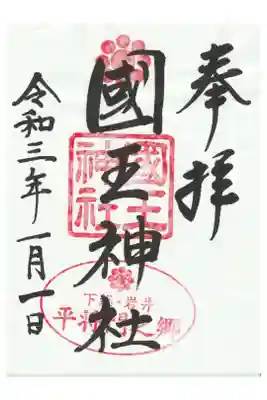 奉拝
國王神社
國王神社
下総・岩井
平將門之郷
令和三年一月一日